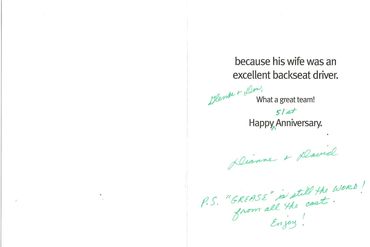 because his wife was an
excellent backseat driver.
Glenda + Don,
What a great team!
51st
Happy Anniversary.
Dianne & David
P.S. "GREASE" is still the WORD!
from all the cast.
Enjoy!